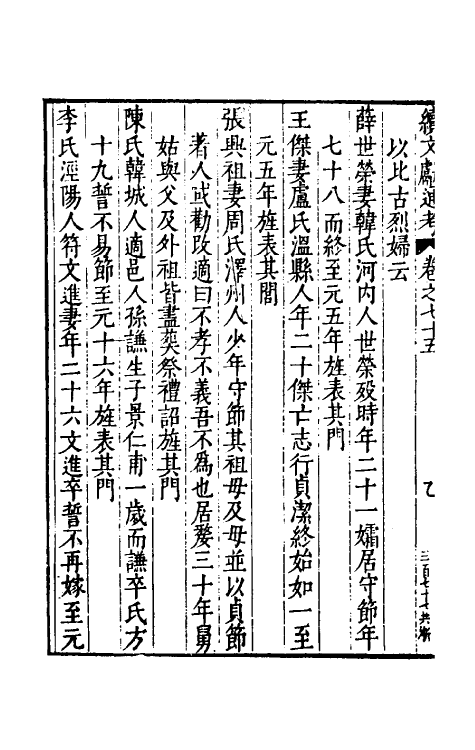 續文獻通考 卷之七十五
以比古烈婦云
薛世榮妻韓氏河內人世榮殁時年二十一孀居守節年
七十八而終至元五年旌表其門
王傑妻盧氏溫縣人年二十傑亡志行貞潔終始如一至
元五年旌表其閭
張興祖妻周氏澤州人少年守節其祖母及母並以貞節
著人或勸改適曰不孝不義吾不爲也居嫠三十年舅
姑與父及外祖皆盡葬祭禮詔旌其門
陳氏韓城人適邑人孫謙生子景仁甫一歲而謙卒氏方
十九誓不易節至元十六年旌表其門
李氏涇陽人符文進妻年二十六文進卒誓不再嫁至元